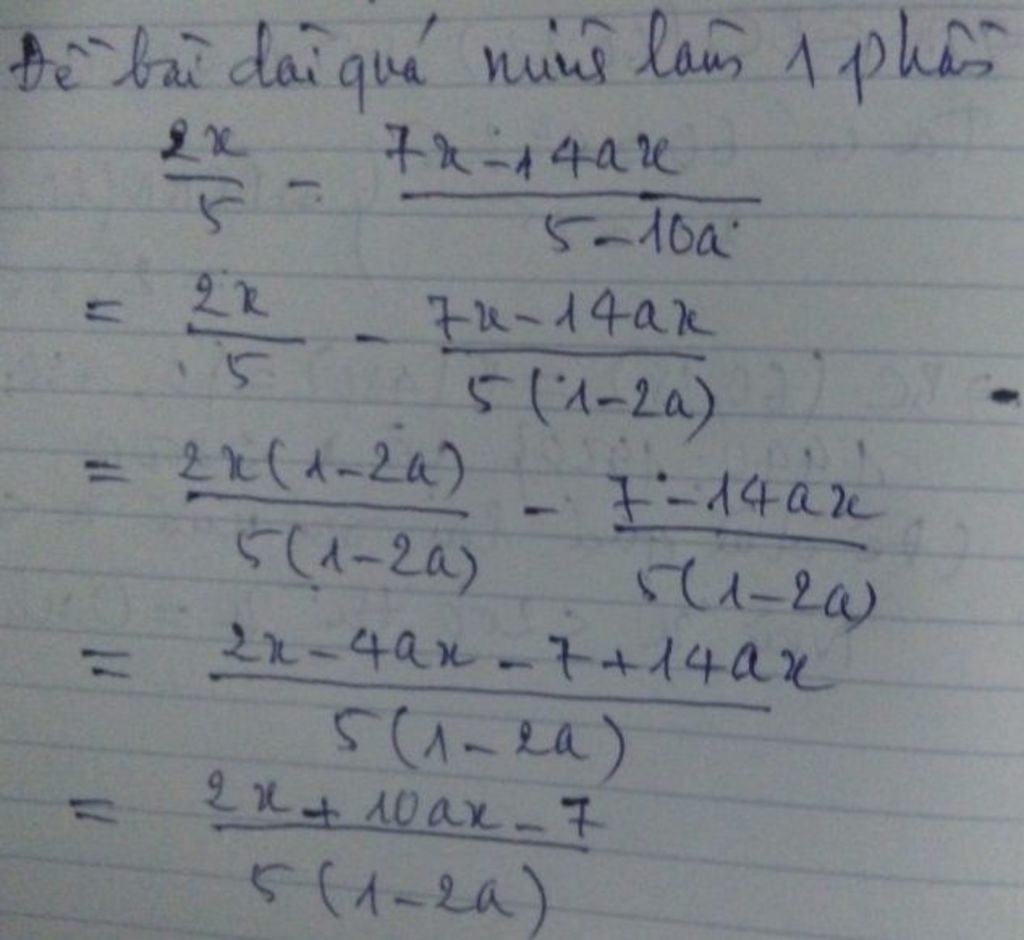 Đề bài dài quá mình làm 1 phần
2x/5 - (7x-14ax)/(5-10a)
= 2x/5 - (7x-14ax)/(5(1-2a))
= (2x(1-2a))/(5(1-2a)) - (7-14ax)/(5(1-2a))
= (2x-4ax-7+14ax)/(5(1-2a))
= (2x+10ax-7)/(5(1-2a))